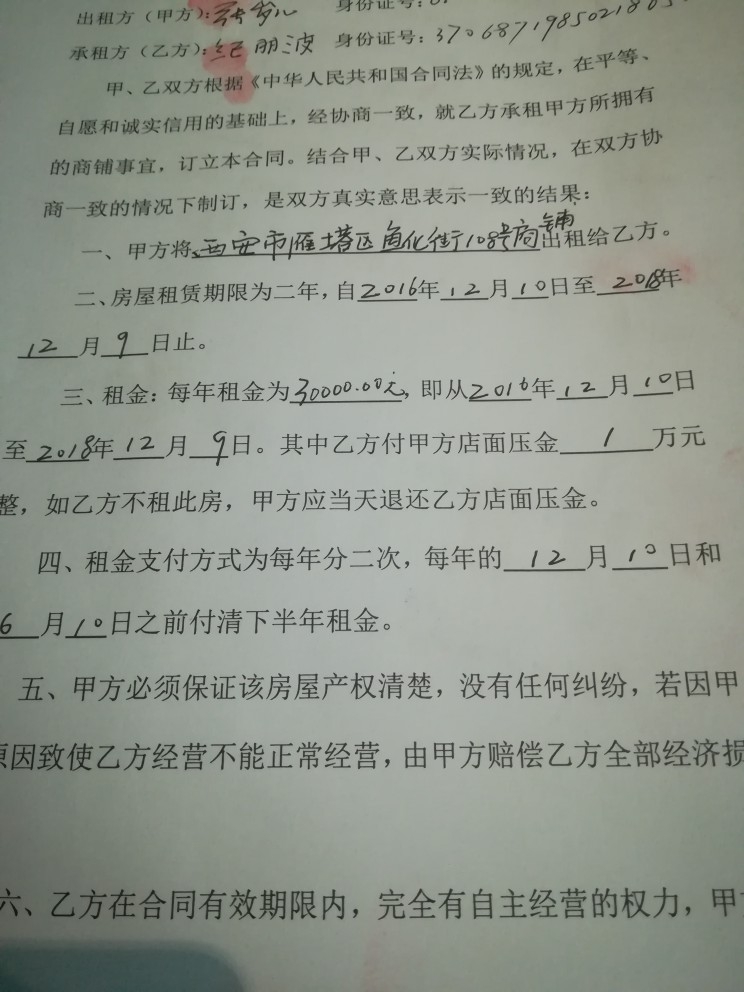 出租方（甲方）： 身份证号：
承租方（乙方）：纪朋波 身份证号：
甲、乙双方根据《中华人民共和国合同法》的规定，在平等、
自愿和诚实信用的基础上，经协商一致，就乙方承租甲方所拥有
的商铺事宜，订立本合同。结合甲、乙双方实际情况，在双方协
商一致的情况下制订，是双方真实意思表示一致的结果：
一、甲方将西安市雁塔区鱼化街108号商铺出租给乙方。
二、房屋租赁期限为二年，自2016年12月10日至2018年
12月9日止。
三、租金：每年租金为30000.00元，即从2016年12月10日
至2018年12月9日。其中乙方付甲方店面压金1万元
整，如乙方不租此房，甲方应当天退还乙方店面压金。
四、租金支付方式为每年分二次，每年的12月10日和
6月10日之前付清下半年租金。
五、甲方必须保证该房屋产权清楚，没有任何纠纷，若因甲
原因致使乙方经营不能正常经营，由甲方赔偿乙方全部经济损
六、乙方在合同有效期限内，完全有自主经营的权力，甲